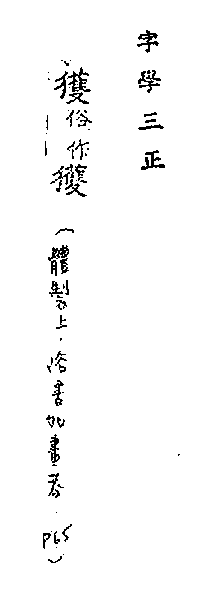 字學三正
獲俗作獲
(體製上.俗書加畫者.P65)